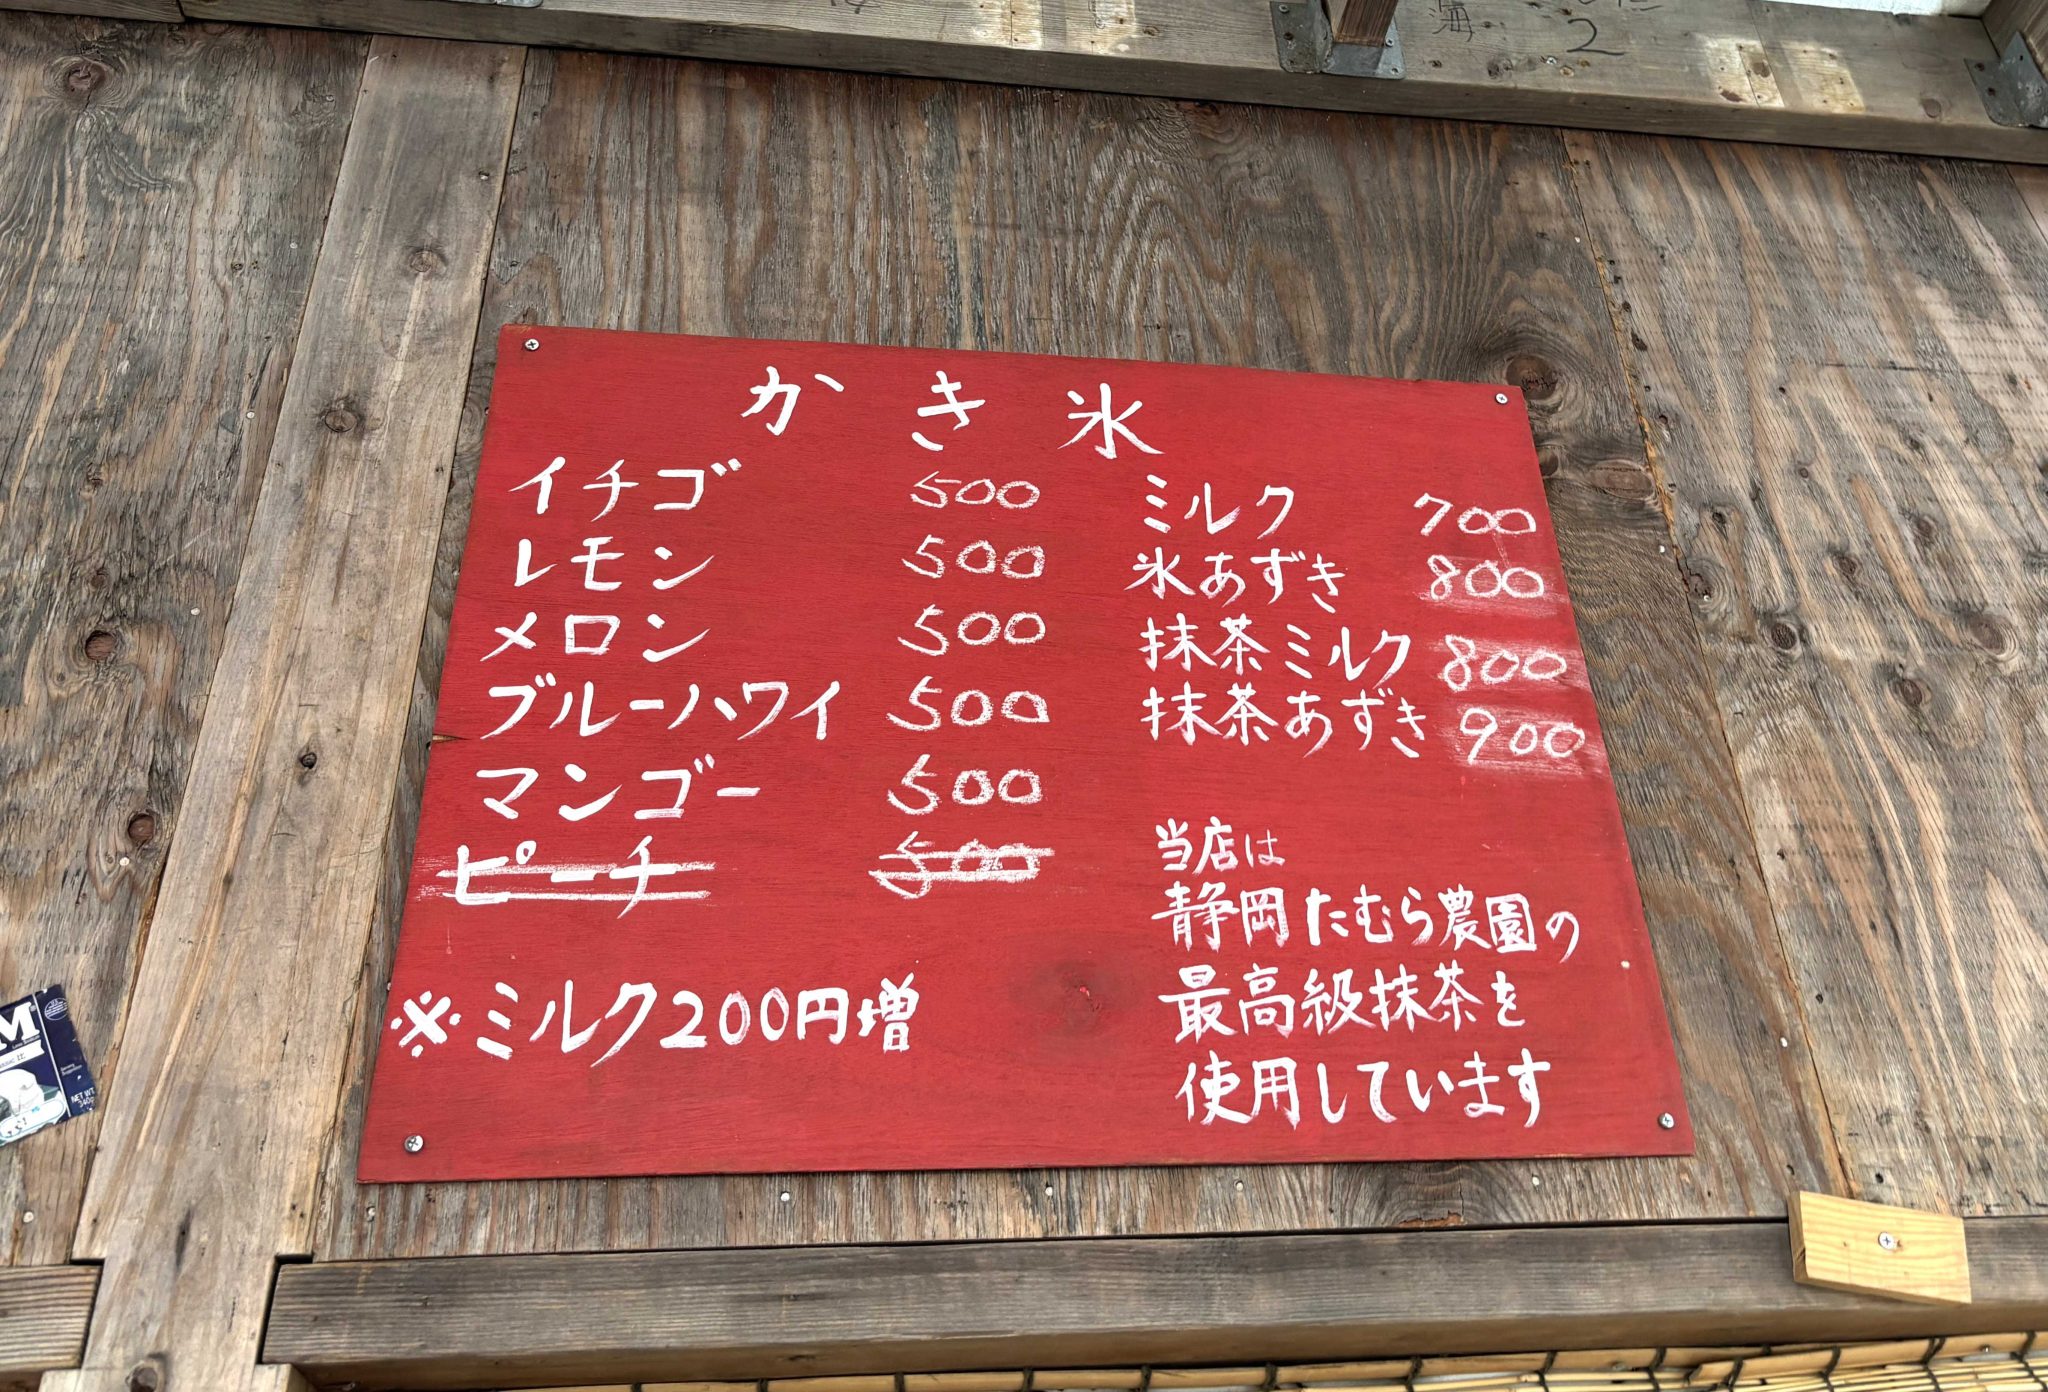 海
2
かき氷
イチゴ 500
レモン 500
メロン 500
ブルーハワイ 500
マンゴー 500
ピーチ 500
※ミルク200円増
ミルク 700
氷あずき 800
抹茶ミルク 800
抹茶あずき 900
当店は
静岡たむら農園の
最高級抹茶を
使用しています
M
NET WT.
340g